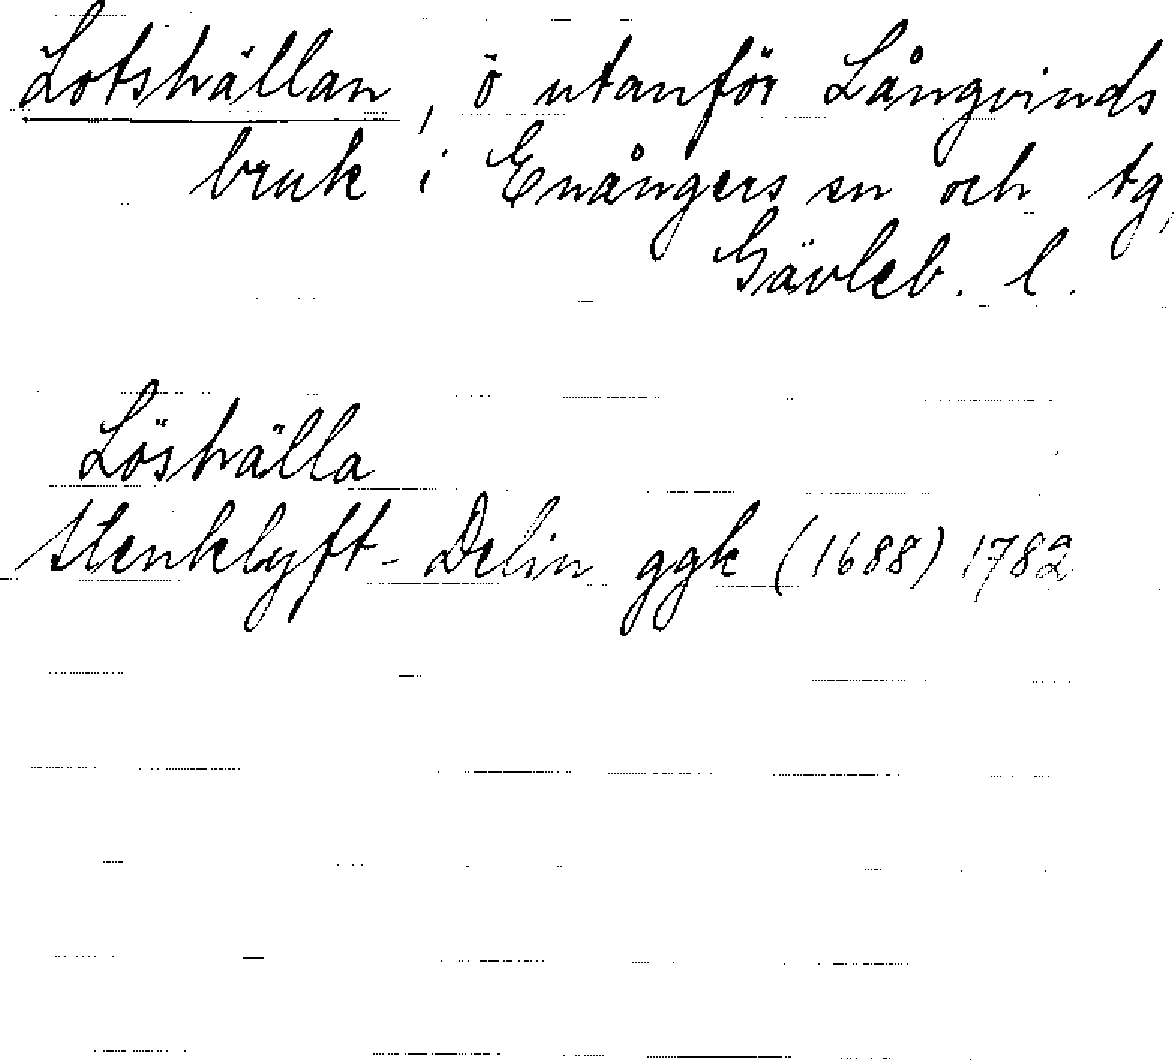 Lotshällan, ö utanför Långvinds
bruk i Enångers sn och tg,
Gävleb. l.
Löshälla
Stenklyft-Delin ggk (1688) 1782